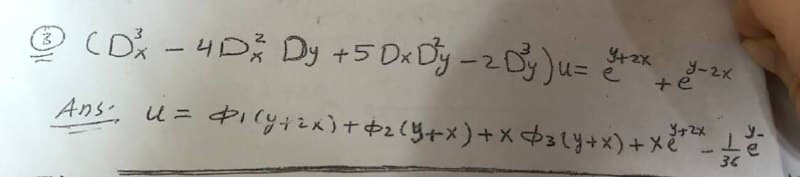 ③ (Dx³ - 4Dx² Dy + 5 Dx Dy² - 2 Dy³) u = e^{y+2x} + e^{y-2x}
Ans. u = ϕ1(y+2x) + ϕ2(y+x) + x ϕ3(y+x) + x e^{y+2x} - 1/36 e^{y-